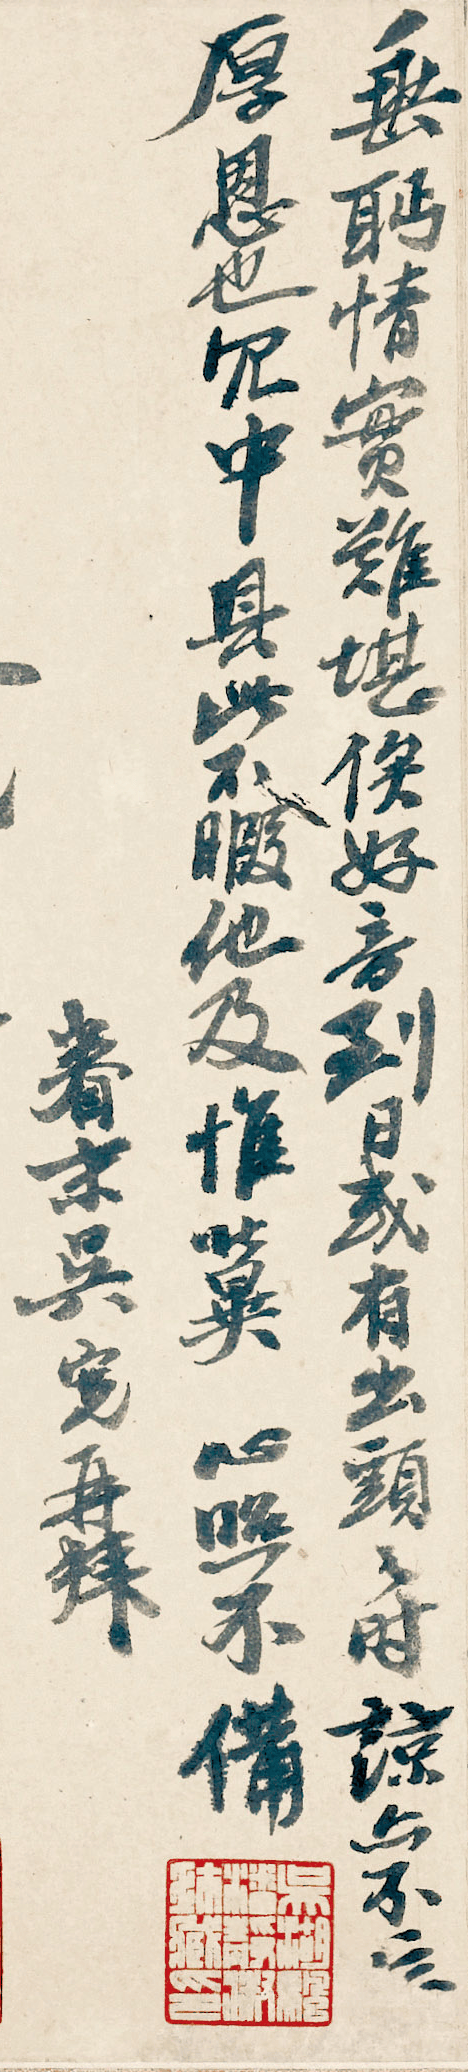 無聊情實難堪俟好音到日或有出頭之時諒亦不忘
厚恩也冗中具此不暇他及惟冀 心照不備
眷末吳寬再拜
吳湖颿潘靜淑珍藏印